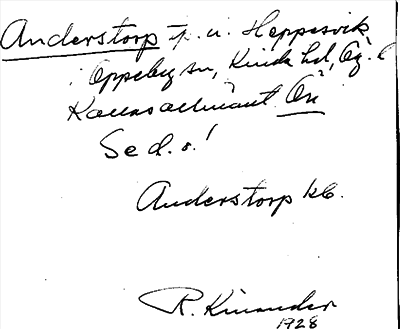 Anderstorp f. u. Heppesvik
Oppeby sn, Kinda hd, Ög. l
allmänt Ön
Se d. o.!
Anderstorp kb.
R. Kinander
1928